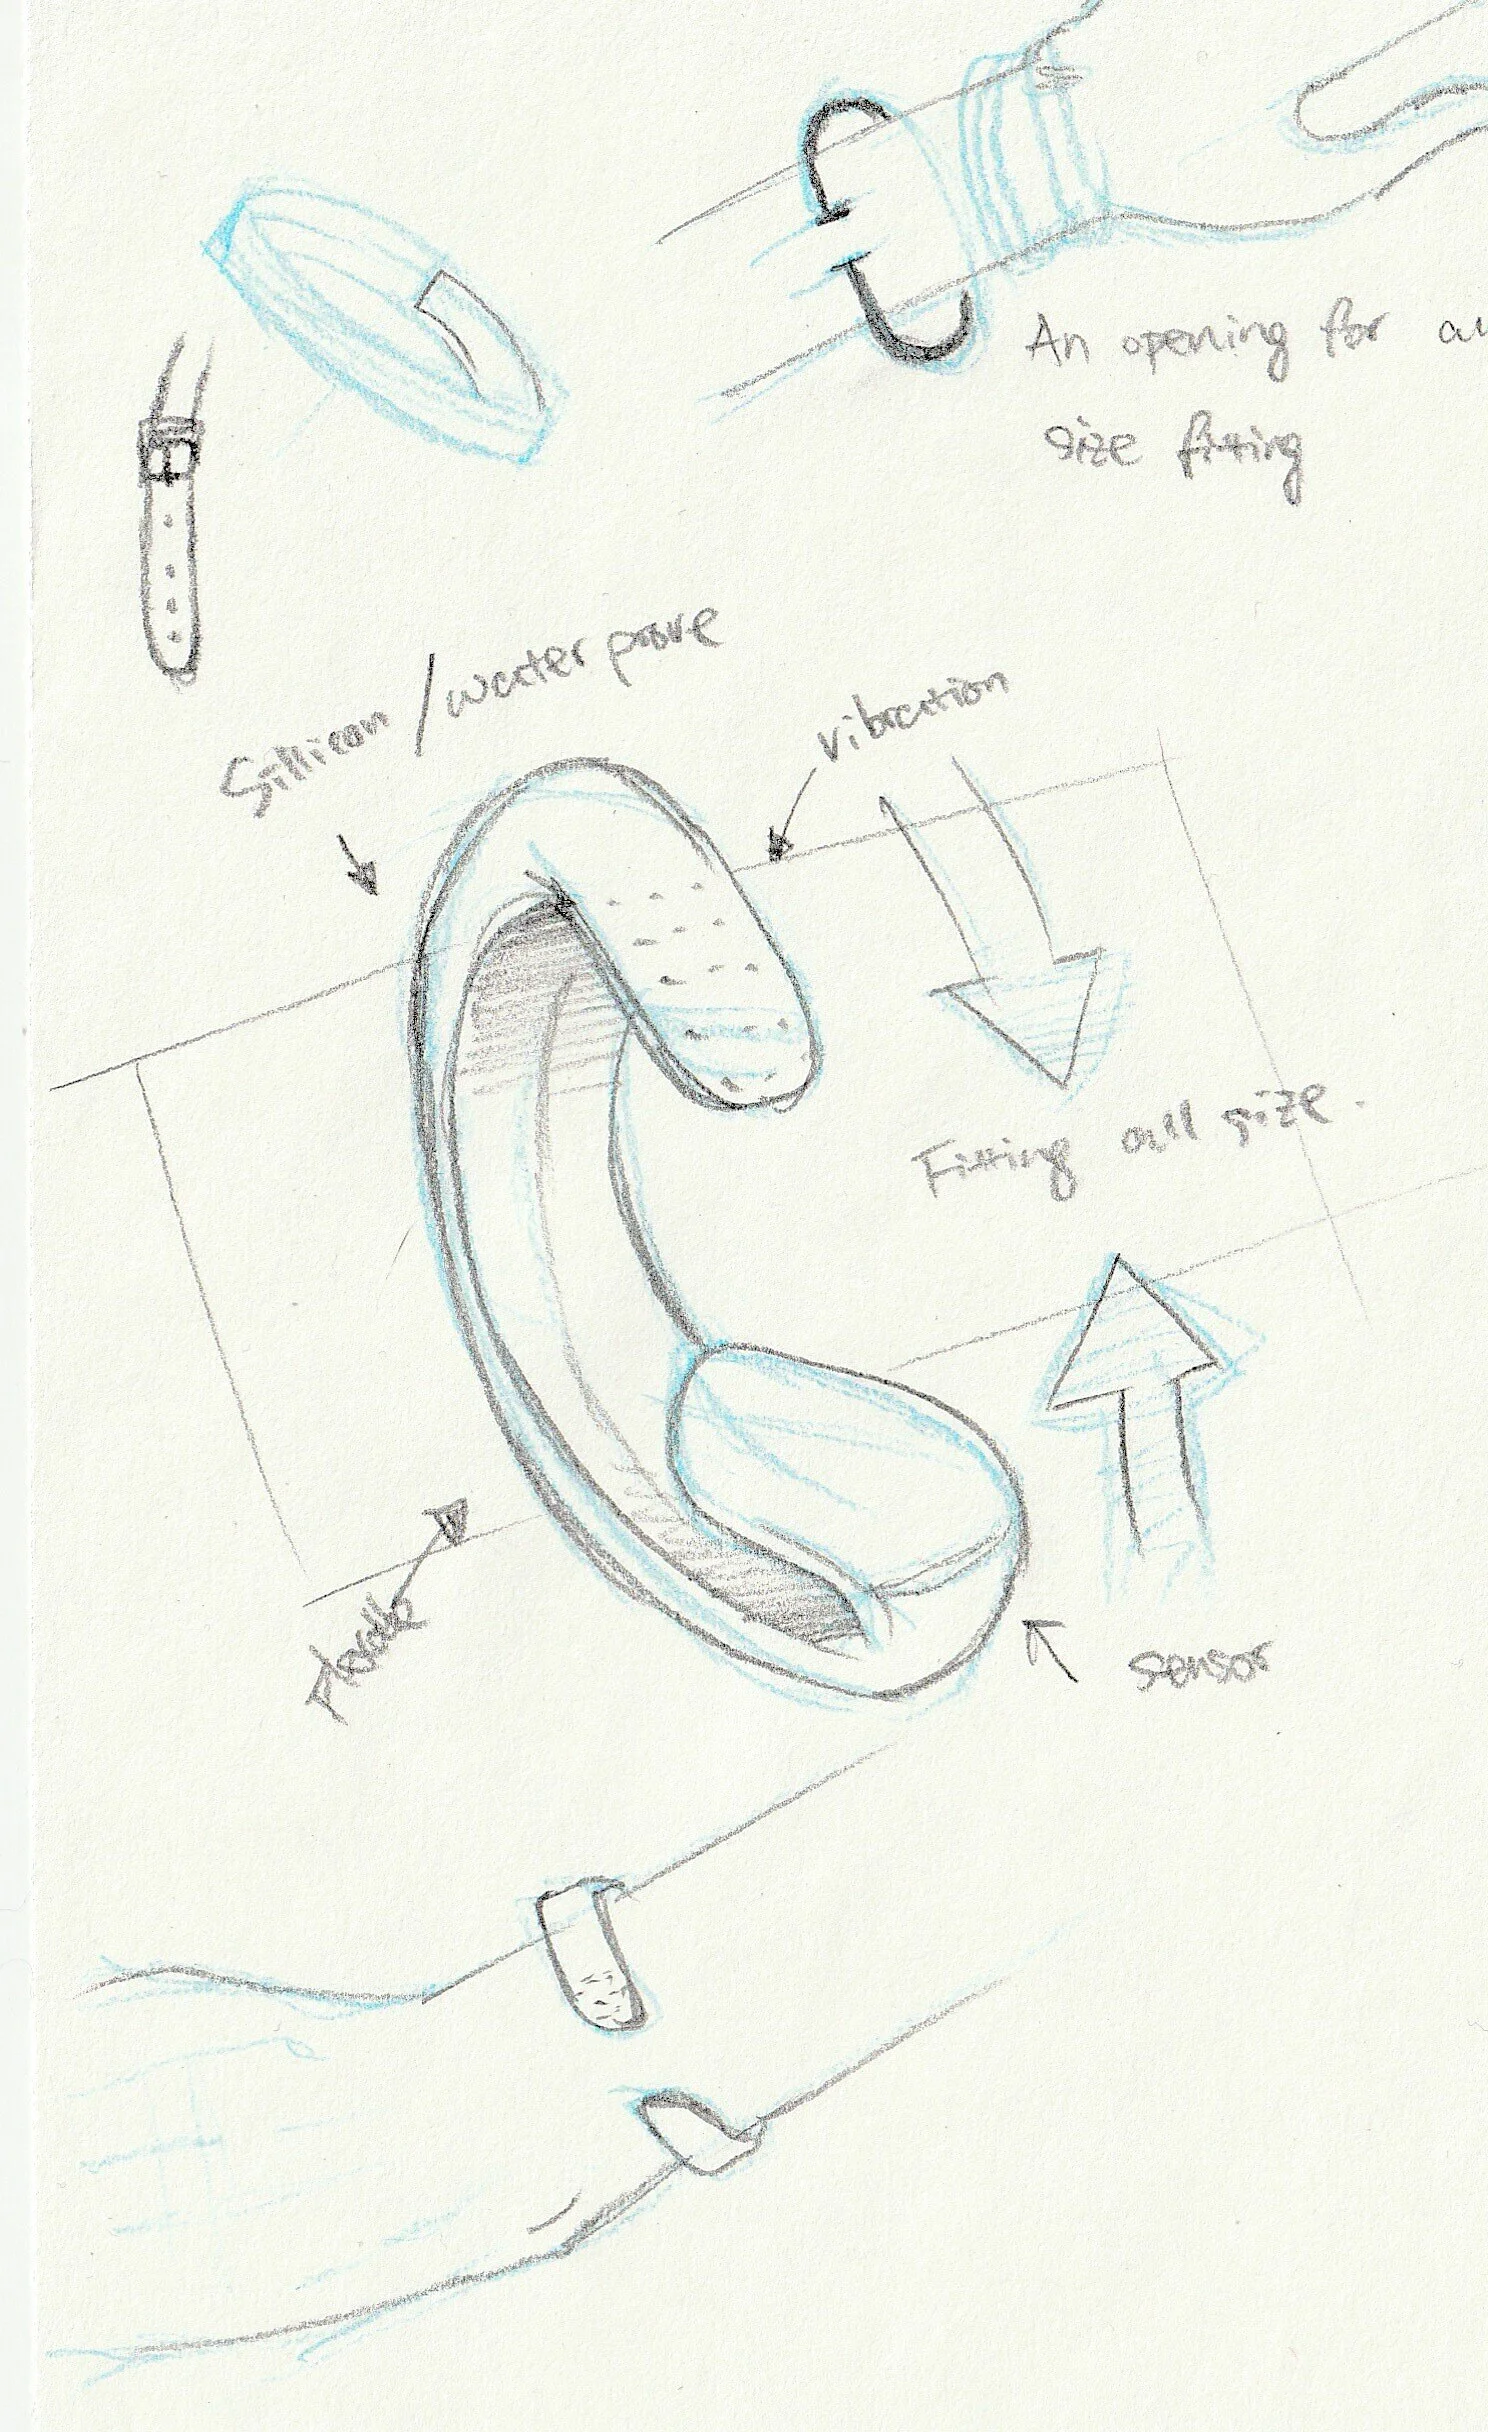 An opening for
size fitting
Sillicon / water prove
vibration
Fitting all size.
sensor